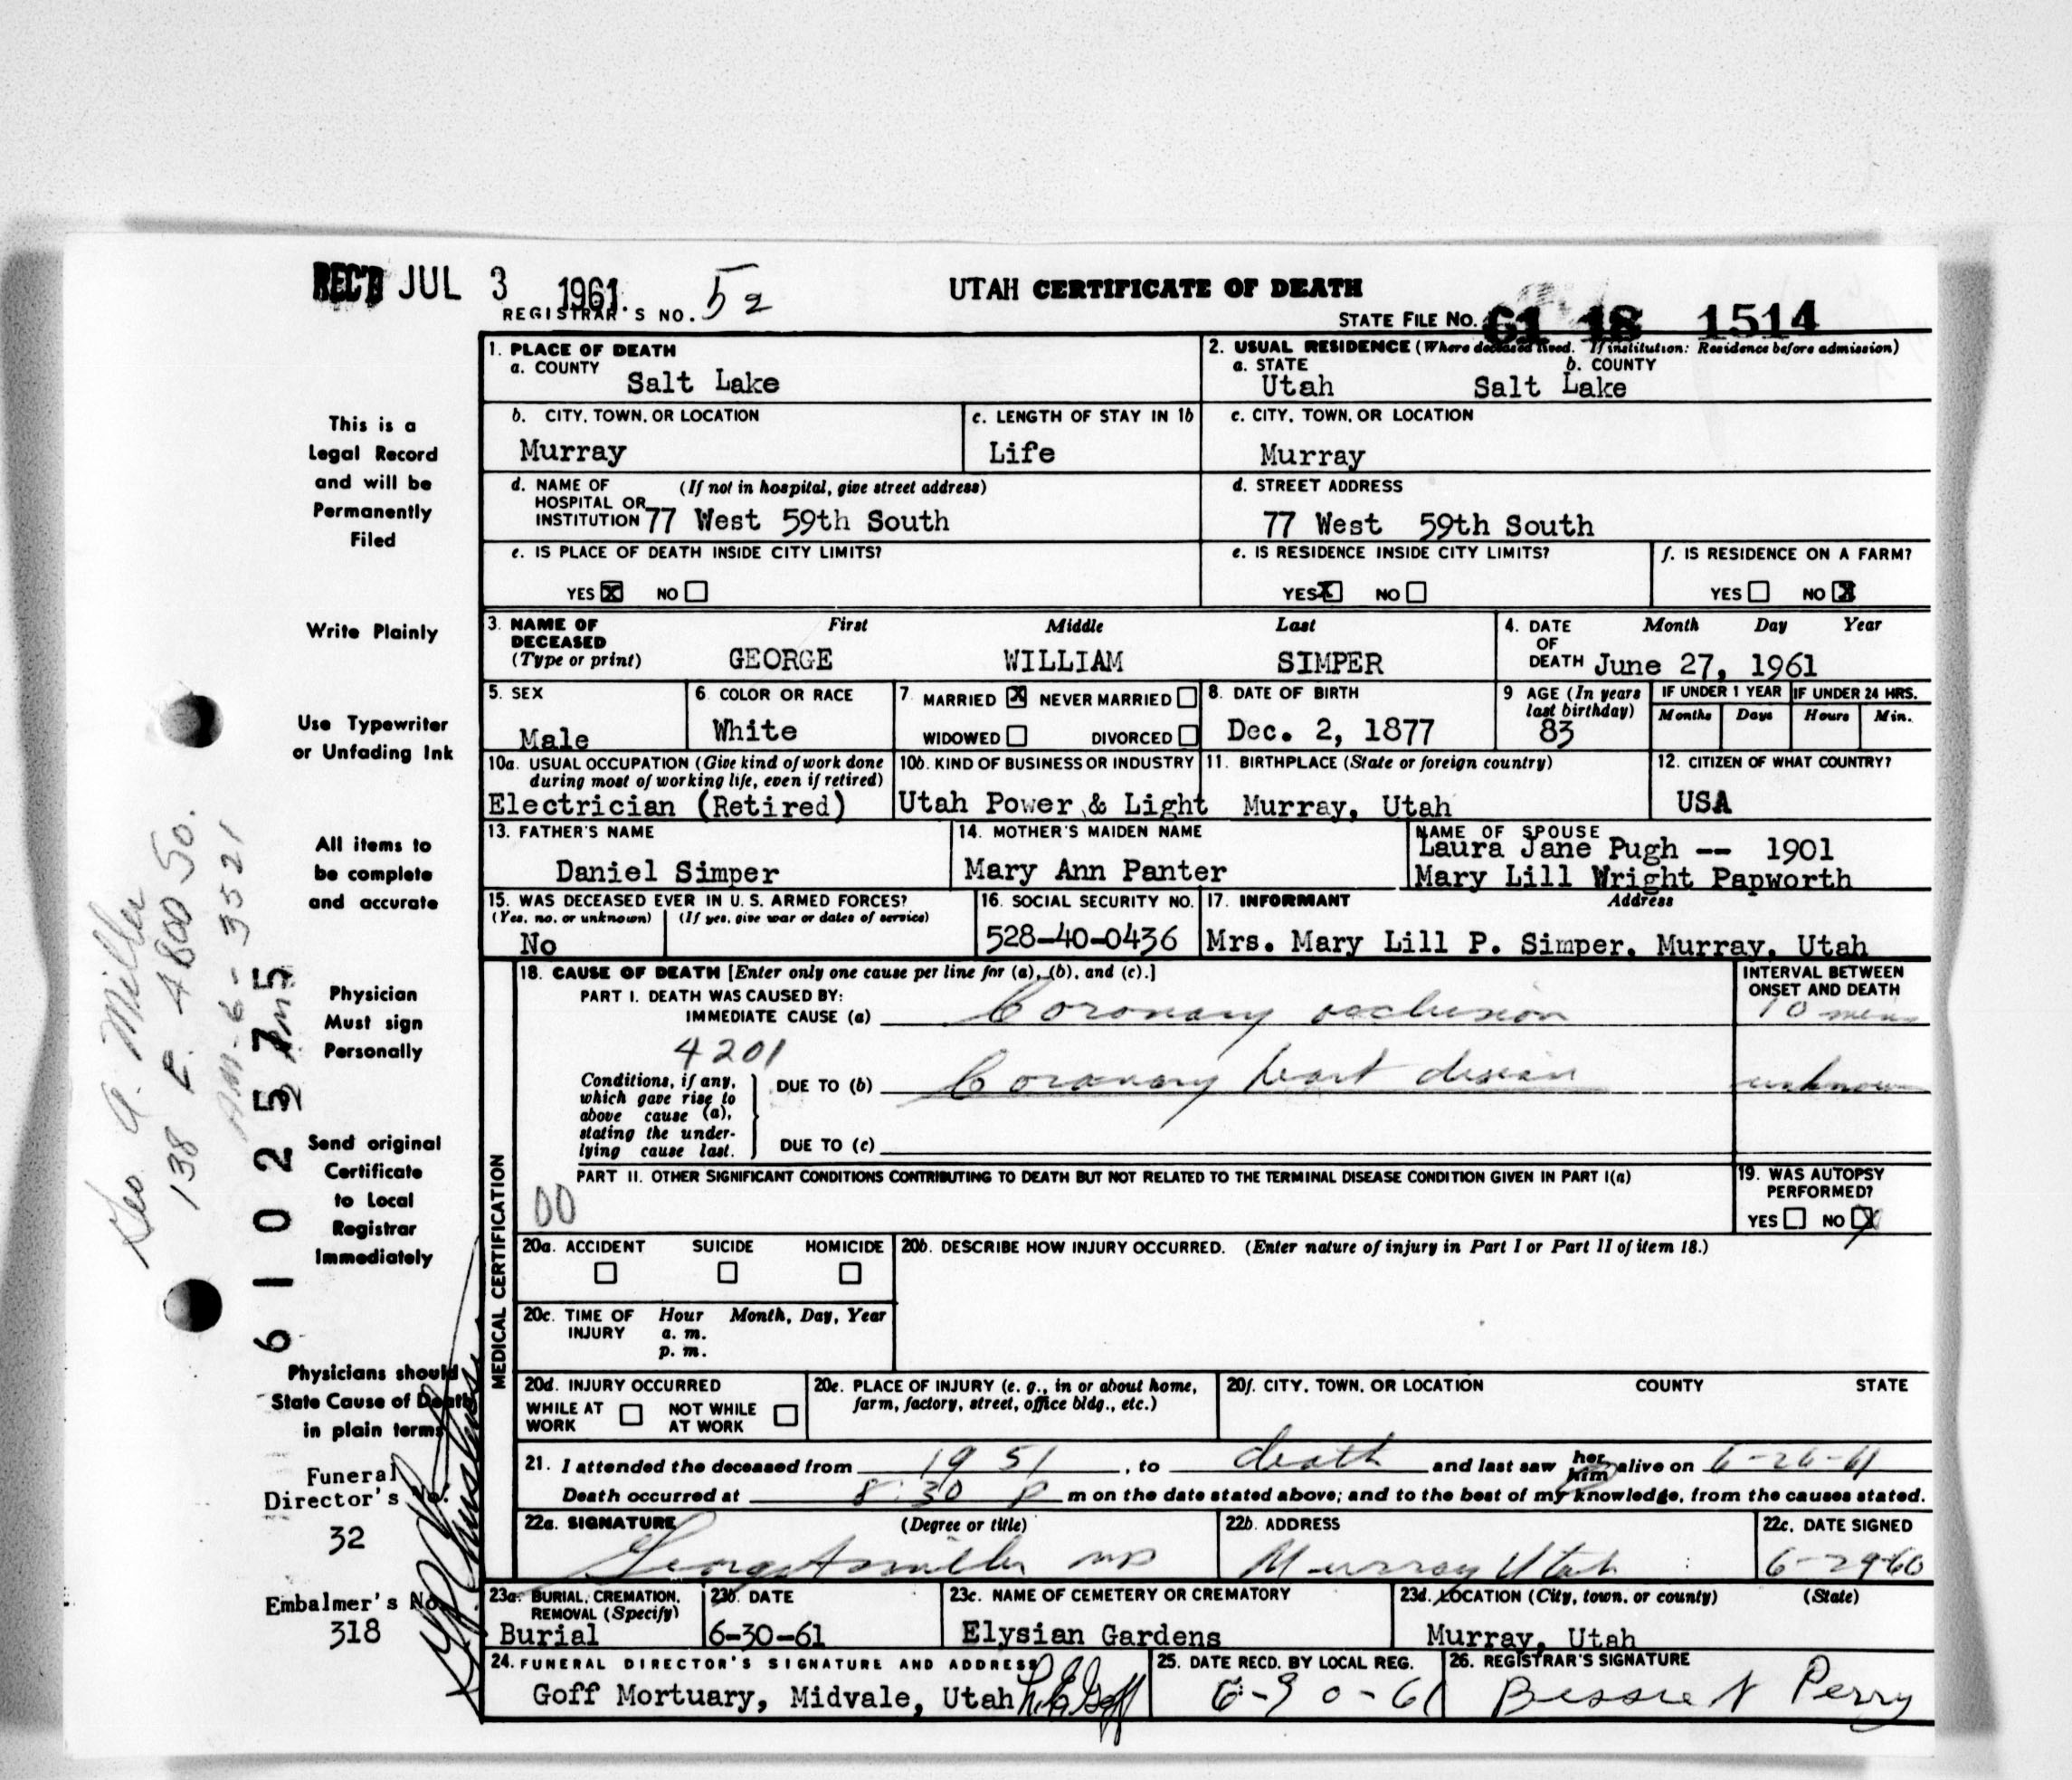 REC'D JUL 3 1961
REGISTRAR'S NO. 52
UTAH CERTIFICATE OF DEATH
STATE FILE NO. 61 18 1514
This is a
Legal Record
and will be
Permanently
Filed
Write Plainly
Use Typewriter
or Unfading Ink
All items to
be complete
and accurate
Physician
Must sign
Personally
Send original
Certificate
to Local
Registrar
Immediately
Physicians should
State Cause of Death
in plain terms
Funeral
Director's No.
32
Embalmer's No.
318
Geo A. Miller
138 E. 4800 So.
AM-6-3521
61025375
1. PLACE OF DEATH
a. COUNTY Salt Lake
2. USUAL RESIDENCE (Where deceased lived. If institution: Residence before admission)
a. STATE Utah b. COUNTY Salt Lake
b. CITY, TOWN, OR LOCATION Murray
c. LENGTH OF STAY IN 1b Life
c. CITY, TOWN, OR LOCATION Murray
d. NAME OF HOSPITAL OR INSTITUTION (If not in hospital, give street address) 77 West 59th South
d. STREET ADDRESS 77 West 59th South
e. IS PLACE OF DEATH INSIDE CITY LIMITS?
YES X NO
e. IS RESIDENCE INSIDE CITY LIMITS?
YES X NO
f. IS RESIDENCE ON A FARM?
YES NO X
3. NAME OF DECEASED (Type or print)
First Middle Last
GEORGE WILLIAM SIMPER
4. DATE OF DEATH Month Day Year
June 27, 1961
5. SEX Male
6. COLOR OR RACE White
7. MARRIED X NEVER MARRIED
WIDOWED DIVORCED
8. DATE OF BIRTH Dec. 2, 1877
9 AGE (In years last birthday) 83
IF UNDER 1 YEAR IF UNDER 24 HRS.
Months Days Hours Min.
10a. USUAL OCCUPATION (Give kind of work done during most of working life, even if retired)
Electrician (Retired)
10b. KIND OF BUSINESS OR INDUSTRY
Utah Power & Light
11. BIRTHPLACE (State or foreign country)
Murray, Utah
12. CITIZEN OF WHAT COUNTRY?
USA
13. FATHER'S NAME
Daniel Simper
14. MOTHER'S MAIDEN NAME
Mary Ann Panter
NAME OF SPOUSE
Laura Jane Pugh -- 1901
Mary Lill Wright Papworth
15. WAS DECEASED EVER IN U. S. ARMED FORCES?
(Yes, no, or unknown) (If yes, give war or dates of service)
No
16. SOCIAL SECURITY NO.
528-40-0436
17. INFORMANT Address
Mrs. Mary Lill P. Simper, Murray, Utah
MEDICAL CERTIFICATION
18. CAUSE OF DEATH [Enter only one cause per line for (a), (b), and (c).]
INTERVAL BETWEEN ONSET AND DEATH
PART I. DEATH WAS CAUSED BY:
IMMEDIATE CAUSE (a) Coronary occlusion 10 mins
4201
Conditions, if any, which gave rise to above cause (a), stating the underlying cause last.
DUE TO (b) Coronary heart disease unknown
DUE TO (c)
PART II. OTHER SIGNIFICANT CONDITIONS CONTRIBUTING TO DEATH BUT NOT RELATED TO THE TERMINAL DISEASE CONDITION GIVEN IN PART I(a)
00
19. WAS AUTOPSY PERFORMED?
YES NO X
20a. ACCIDENT SUICIDE HOMICIDE
20b. DESCRIBE HOW INJURY OCCURRED. (Enter nature of injury in Part I or Part II of item 18.)
20c. TIME OF INJURY Hour Month, Day, Year
a. m.
p. m.
20d. INJURY OCCURRED
WHILE AT WORK NOT WHILE AT WORK
20e. PLACE OF INJURY (e. g., in or about home, farm, factory, street, office bldg., etc.)
20f. CITY, TOWN, OR LOCATION COUNTY STATE
21. I attended the deceased from 1951, to death and last saw her him alive on 6-26-61
Death occurred at 8:30 p m on the date stated above; and to the best of my knowledge, from the causes stated.
22a. SIGNATURE (Degree or title)
George A Miller MD
22b. ADDRESS
Murray Utah
22c. DATE SIGNED
6-29-60
23a. BURIAL, CREMATION, REMOVAL (Specify)
Burial
23b. DATE
6-30-61
23c. NAME OF CEMETERY OR CREMATORY
Elysian Gardens
23d. LOCATION (City, town, or county) (State)
Murray, Utah
24. FUNERAL DIRECTOR'S SIGNATURE AND ADDRESS
Goff Mortuary, Midvale, Utah
25. DATE RECD. BY LOCAL REG.
6-30-61
26. REGISTRAR'S SIGNATURE
Bessie N Perry